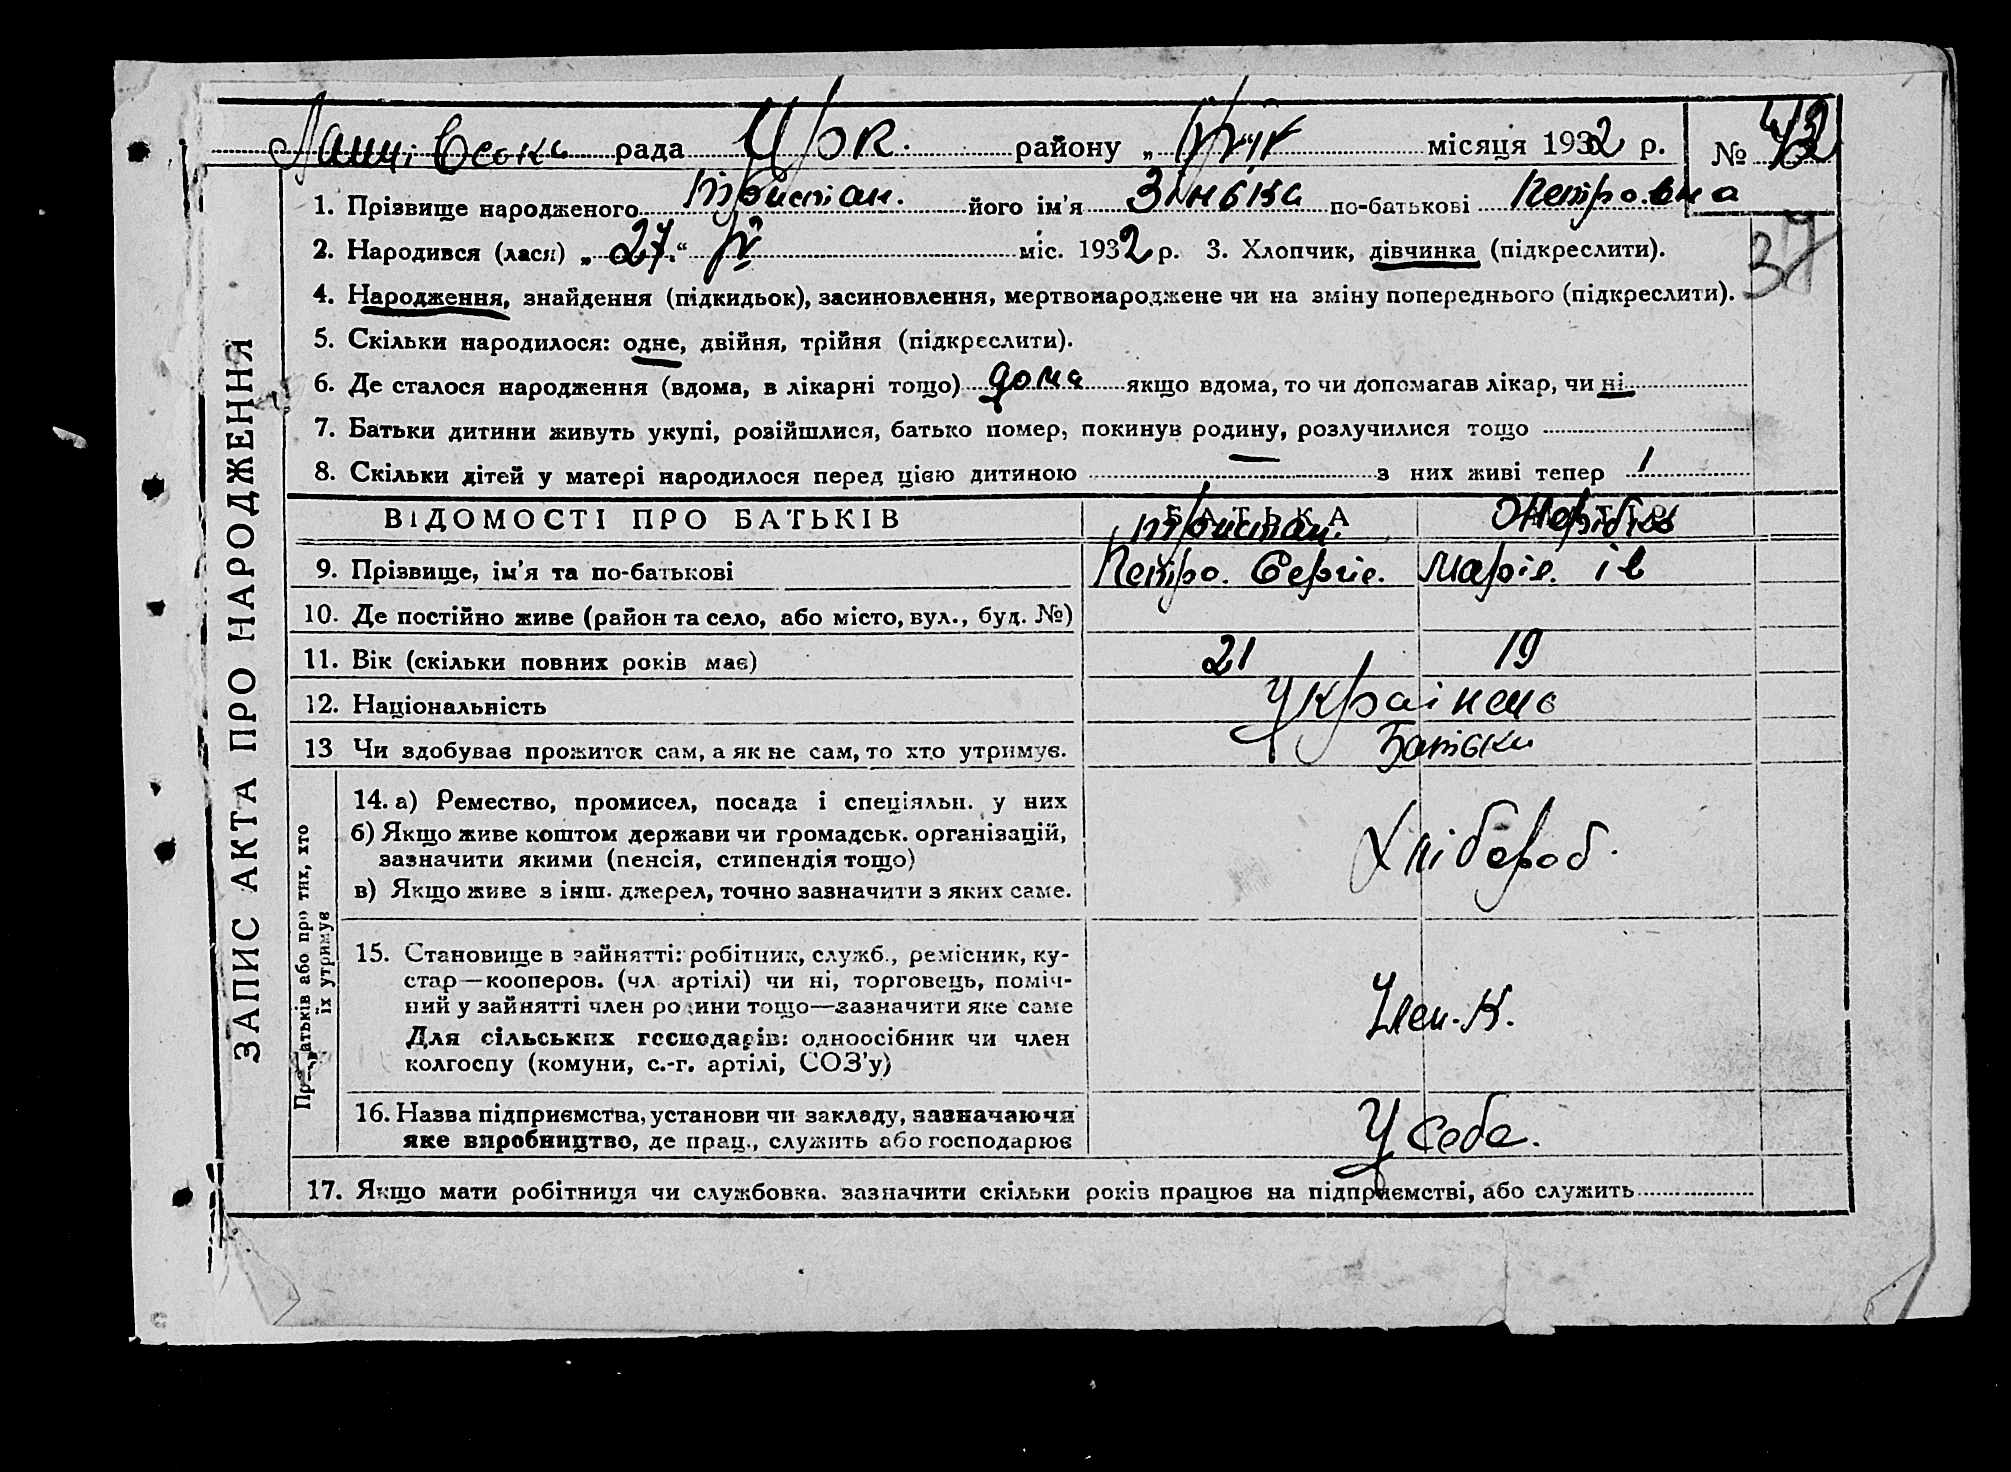 рада район у „ місяця 1932 р. №
1. Прізвище народженого Тристан. його ім'я Зінька по-батькові Петровна
2. Народився (лася) „27.“ міс. 1932 р. 3. Хлопчик, дівчинка (підкреслити).
37
4. Народження, знайдення (підкидьок), засиновлення, мертвонароджене чи на зміну попереднього (підкреслити).
5. Скільки народилося: одне, двійня, трійня (підкреслити).
6. Де сталося народження (вдома, в лікарні тощо) дома якщо вдома, то чи допомагав лікар, чи ні
7. Батьки дитини живуть укупі, розійшлися, батько помер, покинув родину, розлучилися тощо
8. Скільки дітей у матері народилося перед цією дитиною з них живі тепер 1
ВІДОМОСТІ ПРО БАТЬКІВ БАТЬКА
Тристан.
9. Прізвище, ім'я та по-батькові Петро. Сергіє. Марія. ів
10. Де постійно живе (район та село, або місто, вул., буд. №)
11. Вік (скільки повних років має) 21 19
12. Національність Українець
13 Чи здобуває прожиток сам, а як не сам, то хто утримує. Батьки
14. а) Ремество, промисел, посада і спеціяльн. у них
б) Якщо живе коштом держави чи громадськ. організацій,
зазначити якими (пенсія, стипендія тощо)
Хлібороб.
в) Якщо живе з інш. джерел, точно зазначити з яких саме.
15. Становище в зайнятті: робітник, служб., ремісник, ку-
стар—кооперов. (чл артілі) чи ні, торговець, поміч-
ний у зайнятті член родини тощо—зазначити яке саме
Член. К.
Для сільських господарів: одноосібник чи член
колгоспу (комуни, с.-г. артілі, СОЗ'у)
16. Назва підприємства, установи чи закладу, зазначаючи
яке виробництво, де прац., служить або господарює
У себе.
17. Якщо мати робітниця чи службовка. зазначити скільки років працює на підприємстві, або служить
ЗАПИС АКТА ПРО НАРОДЖЕННЯ
Про батьків або про тих, хто
їх утримує